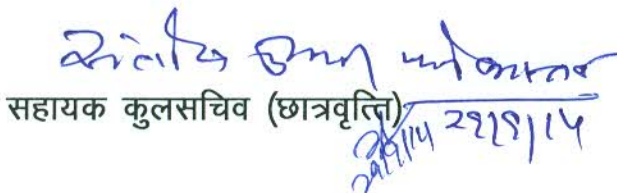 संतोष कुमार
सहायक कुलसचिव (छात्रवृत्ति)
29/9/14 29/9/14